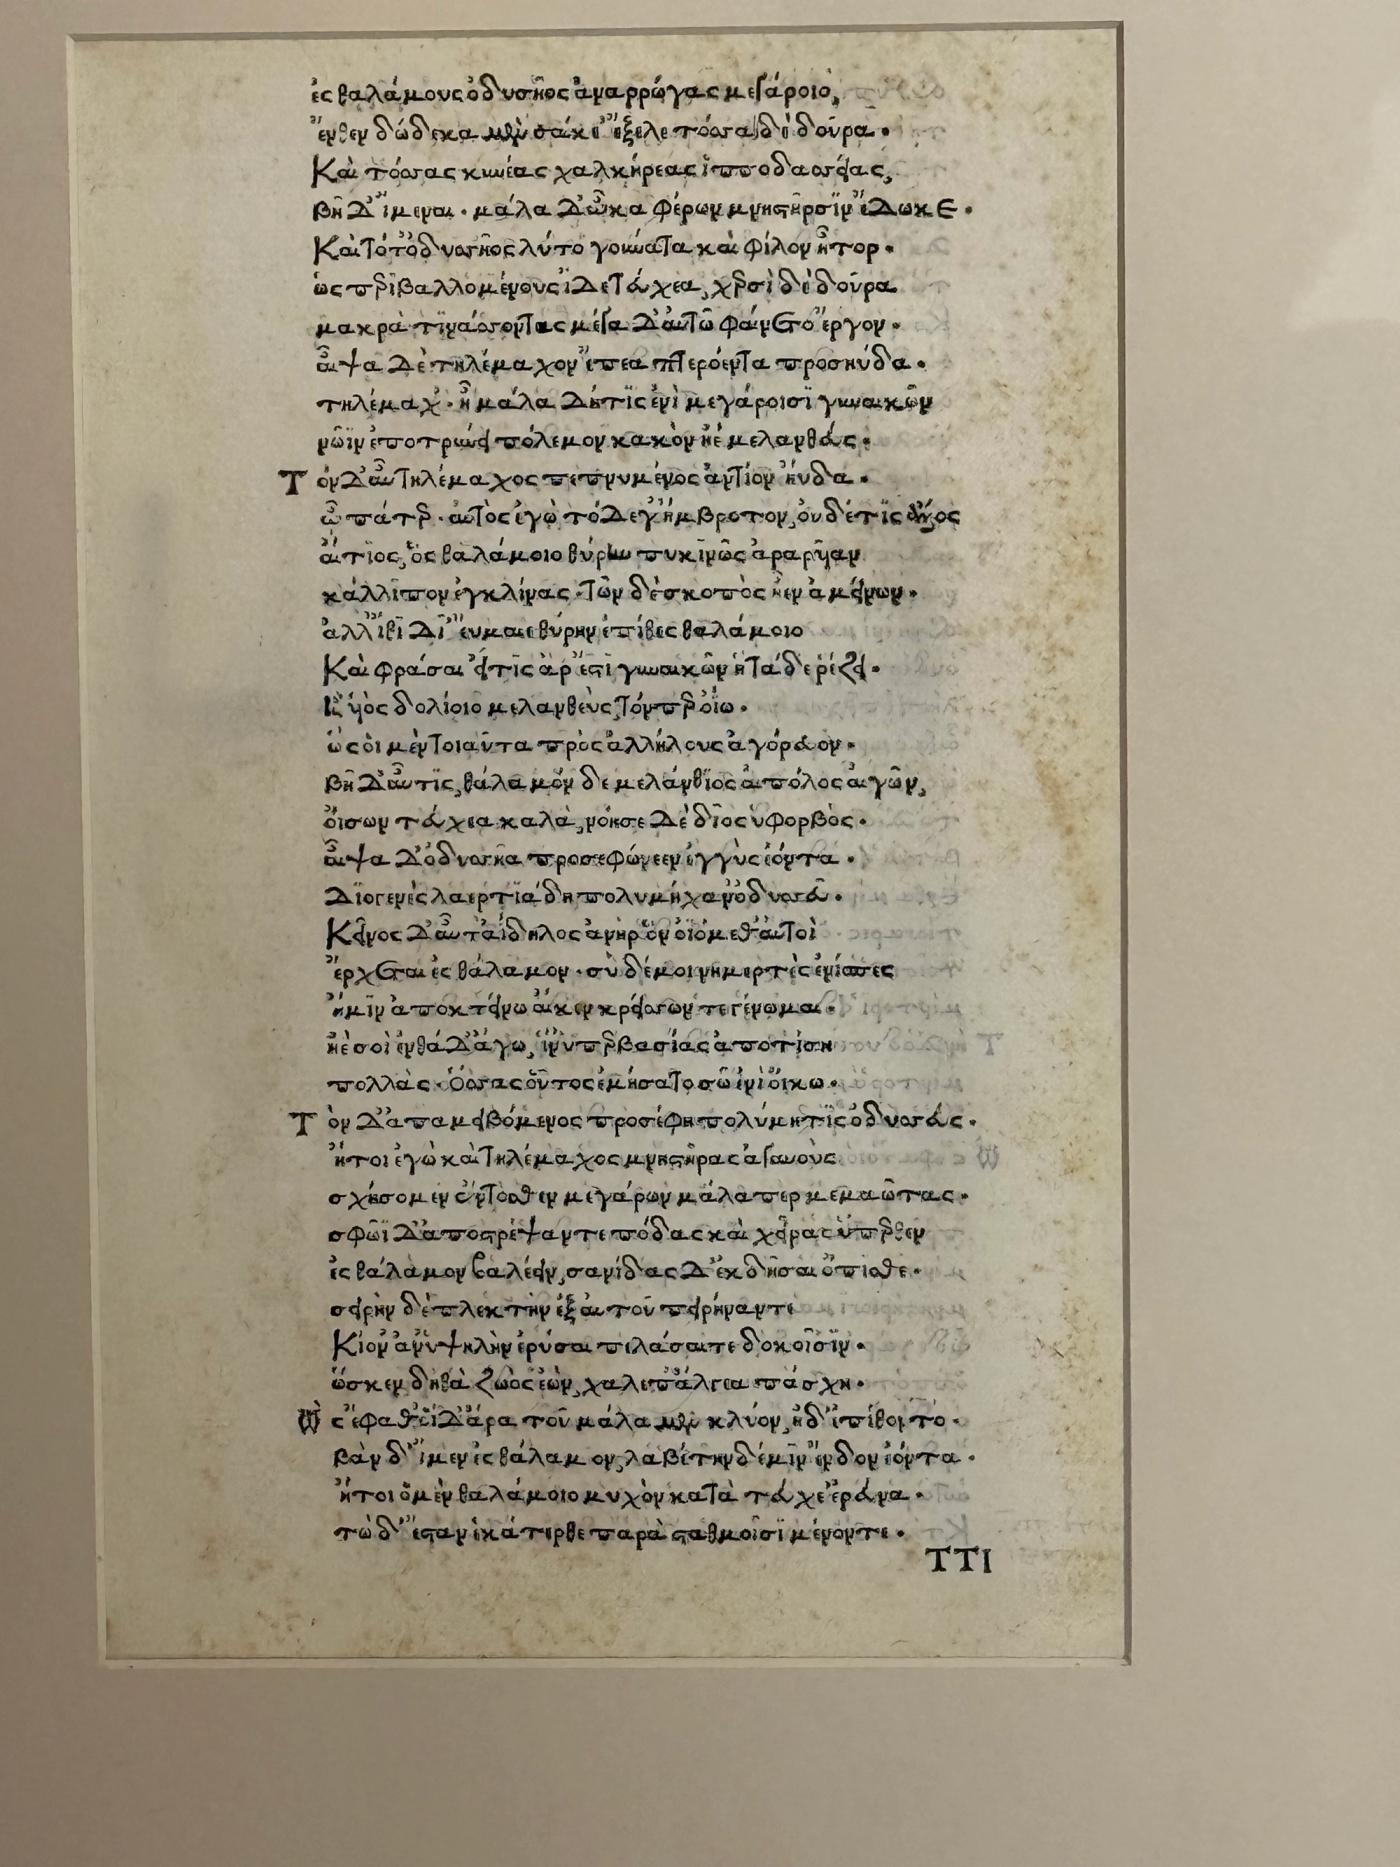 ἐς θαλάμους ὀδυσῆος ἀναρρώγας μεγάροιο,
ἔνθεν δώδεκα μὲν σάκε' ἔξελε τόσσα δὲ δοῦρα.
Καὶ τόσσας κυνέας χαλκήρεας ἱπποδασείας,
βῆ δ' ἴμεναι. μάλα δ' ὦκα φέρων μνηστῆρσιν ἔδωκε.
Καὶ τότ' ὀδυσσῆος λύτο γούνατα καὶ φίλον ἦτορ.
ὡς περιβαλλομένους ἴδε τεύχεα, χερσὶ δὲ δοῦρα
μακρὰ τινάσσοντας μέγα δ' αὐτῶ φαίνετο ἔργον.
αἶψα δὲ τηλέμαχον ἔπεα πτερόεντα προσηύδα.
τηλέμαχ'. ἦ μάλα δήτις ἐνὶ μεγάροισι γυναικῶν
νῶϊν ἐποτρύνει πόλεμον κακὸν ἠὲ μελανθεύς.
Τὸν δ' αὖ τηλέμαχος πεπνυμένος ἀντίον ηὔδα.
ὦ πάτερ. αὐτὸς ἐγὼ τόδε γ' ἤμβροτον, οὐδέ τις ἄλλος
αἴτιος, ὃς θαλάμοιο θύρην πυκινῶς ἀραρῆαν
κάλλιπον ἐγκλίνας. τῶν δὲ σκοπὸς ἦεν ἀμείνων.
ἀλλ' ἴθι δῖ' εὔμαιε θύρην ἐπίθες θαλάμοιο
Καὶ φράσαι εἴ τις ἄρ' ἐστὶ γυναικῶν ἣ τάδε ῥέζει.
Ἢ υἱὸς δολίοιο μελανθεὺς, τόν περ ὀΐω.
ὣς οἱ μὲν τοιαῦτα πρὸς ἀλλήλους ἀγόρευον.
βῆ δ' αὖτις, θάλαμόν δε μελάνθιος αἰπόλος αἰγῶν,
οἴσων τεύχεα καλὰ, νόησε δὲ δῖος ὑφορβὸς.
αἶψα δ' ὀδυσσῆα προσεφώνεεν ἐγγὺς ἐόντα.
Διογενὲς λαερτιάδη πολυμήχαν' ὀδυσσεῦ.
Κεῖνος δ' αὖτ' ἀΐδηλος ἀνὴρ ὃν ὀϊόμεθ' αὐτοὶ
ἔρχεται ἐς θάλαμον. σὺ δέ μοι νημερτὲς ἐνίσπες
ἤ μιν ἀποκτείνω αἴ κεν κρείσσων τε γένωμαι.
ἠὲ σοὶ ἐνθάδ' ἄγω, ἵν' ὑπερβασίας ἀποτίση
πολλὰς. ὅσσας οὗτος ἐμήσατο σῶ ἐνὶ οἴκω.
Τὸν δ' ἀπαμειβόμενος προσέφη πολύμητις ὀδυσσεύς.
ἤτοι ἐγὼ καὶ τηλέμαχος μνηστῆρας ἀγαυοὺς
σχήσομεν ἔντοσθεν μεγάρων μάλα περ μεμαῶτας.
σφῶϊ δ' ἀποστρέψαντε πόδας καὶ χεῖρας ὕπερθεν
ἐς θάλαμον βαλέειν, σανίδας δ' ἐκδῆσαι ὄπισθε.
σειρὴν δὲ πλεκτὴν ἐξ αὐτοῦ πειρήναντε
Κίον' ἀν' ὑψηλὴν ἐρύσαι πελάσαι τε δοκοῖσιν.
ὥς κεν δηθὰ ζωὸς ἐὼν, χαλέπ' ἄλγεα πάσχη.
Ὣς ἔφαθ' οἱ δ' ἄρα τοῦ μάλα μὲν κλύον, ἠδ' ἐπίθοντο.
βὰν δ' ἴμεν ἐς θάλαμον, λαθέτην δέ μιν ἔνδον ἐόντα.
ἤτοι ὁ μὲν θαλάμοιο μυχὸν κατὰ τεύχε' ἐρεύνα.
τὼ δ' ἔσταν ἑκάτερθε παρὰ σταθμοῖσι μένοντε.
ΤΤΙ